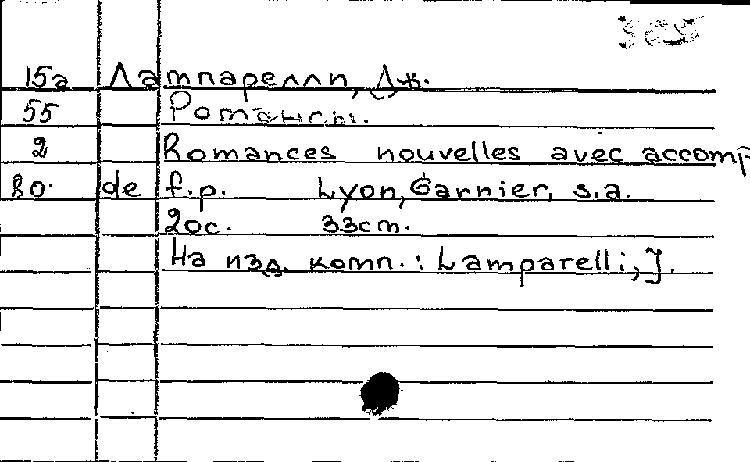 15а Лампарелли, Дж.
55 Романсы.
2 Romances nouvelles avec accomp
Во. de f.p. Lyon, Garnier, s.a.
20с. 33cm.
На изд. комп.: Lamparelli, J.